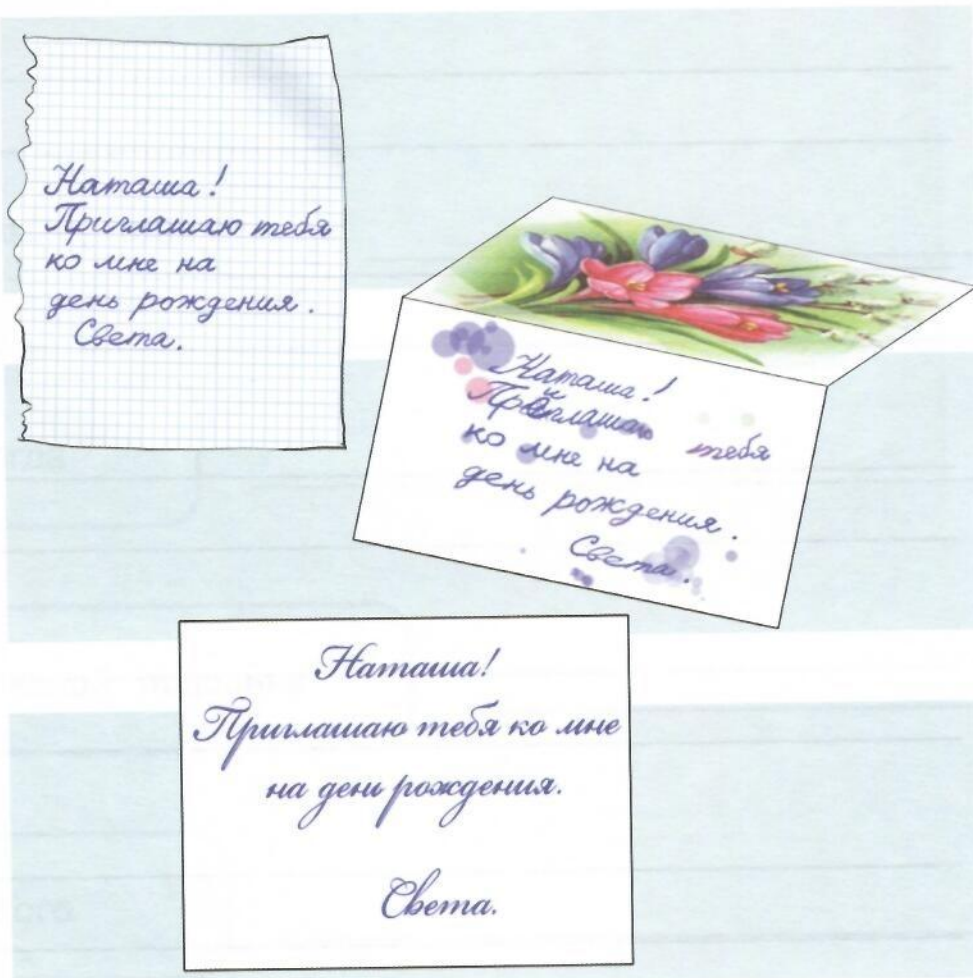 Наташа!
Приглашаю тебя
ко мне на
день рождения.
Света.
Наташа!
Приглашаю тебя
ко мне на
день рождения.
Света.
Наташа!
Приглашаю тебя ко мне
на день рождения.
Света.